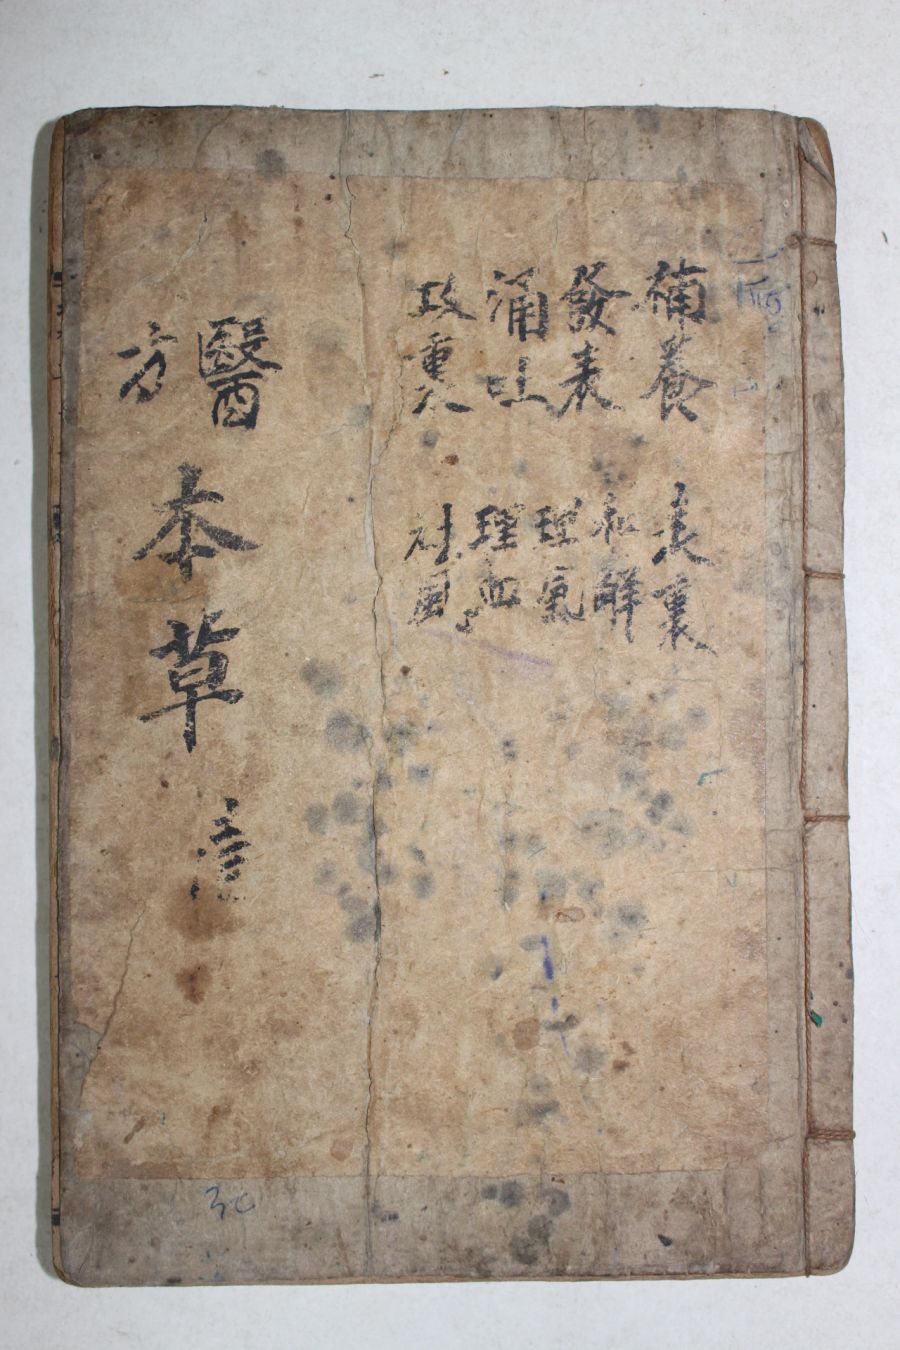 補養
發表
涌吐
攻裏
表裏
和解
理氣
理血
祛風
醫方
本草
30